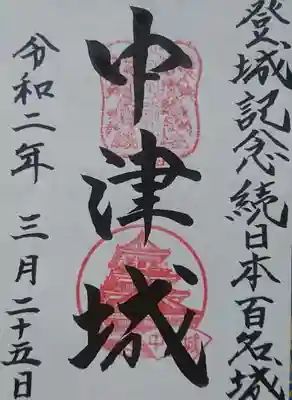 登城記念続日本百名城
中津城
令和二年三月二十五日